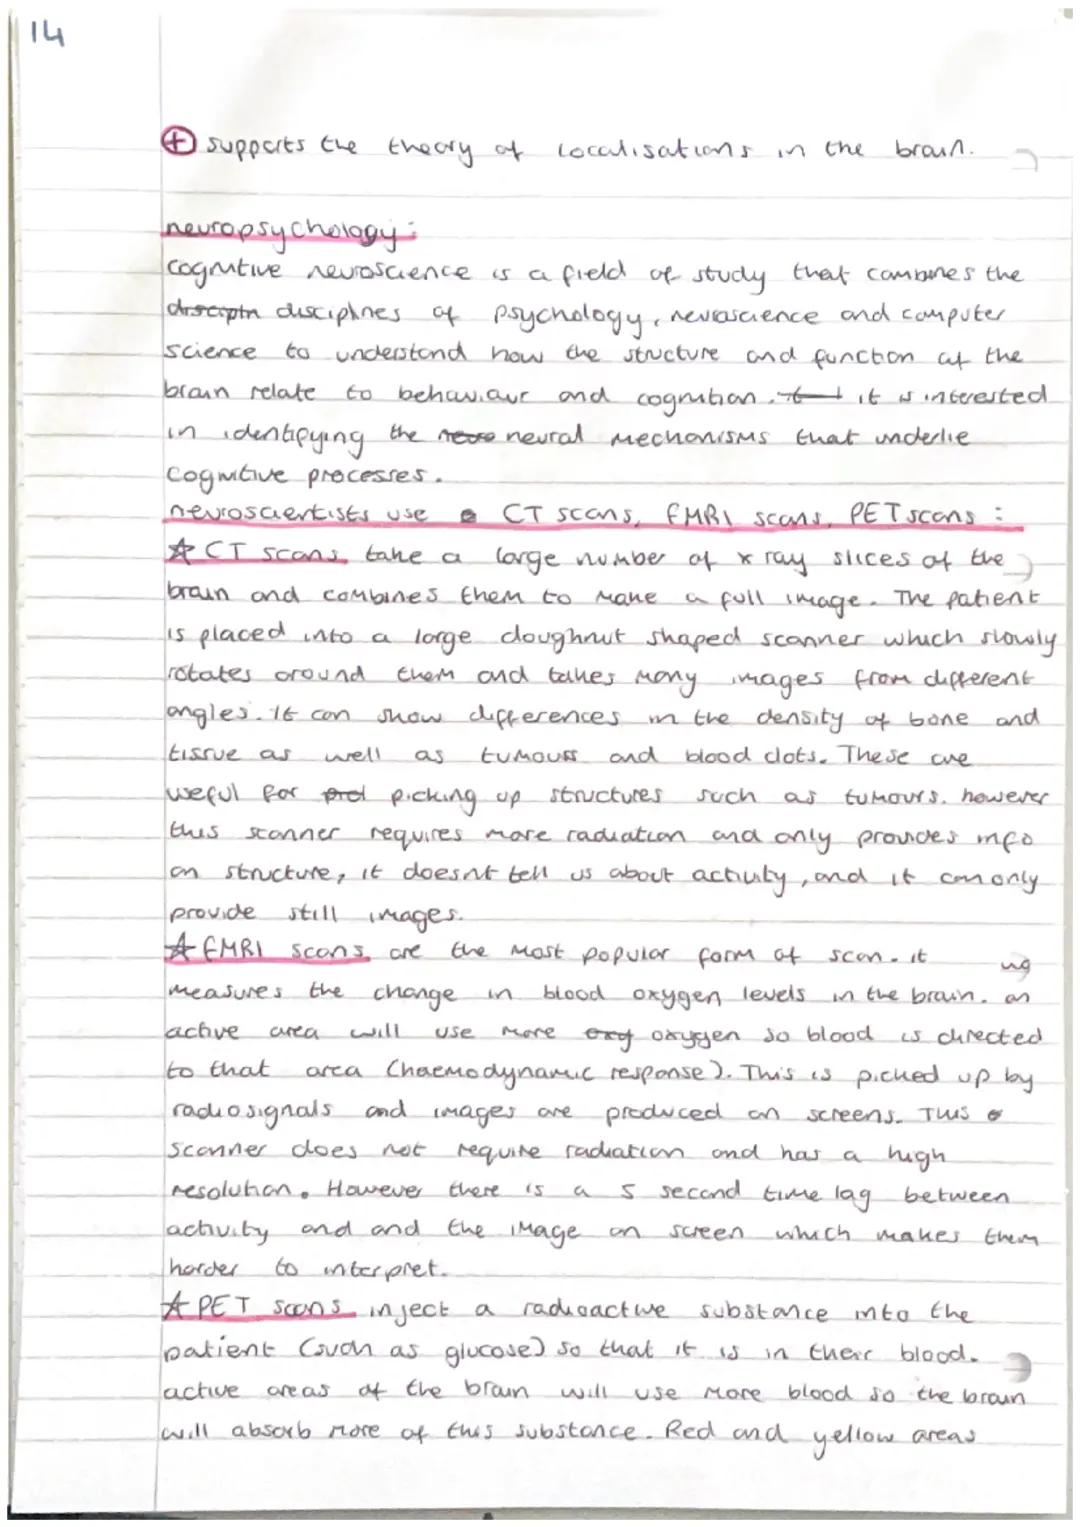 14
+ supports the theory of localisations in the brain.
neuropsychology:
cognitive neuroscience is a field of study that combines the
disciplines of psychology, neuroscience and computer
science to understand how the structure and function of the
brain relate to behaviour and cognition. it is interested
in identifying the neural mechanisms that underlie
cognitive processes.
neuroscientists use CT scans, fMRI scans, PET scans :
☆ CT scans take a large number of x ray slices of the
brain and combines them to make a full image. The patient
is placed into a large doughnut shaped scanner which slowly
rotates around them and takes many images from different
angles. It can show differences in the density of bone and
tissue as well as tumours and blood clots. These are
useful for picking up structures such as tumours. however
this scanner requires more radiation and only provides info
on structure, it doesnt tell us about activity, and it can only
provide still images.
☆ fMRI scans are the most popular form of scan. it
measures the change in blood oxygen levels in the brain. an
active area will use more oxygen so blood is directed
to that area (haemodynamic response). This is picked up by
radiosignals and images are produced on screens. This
scanner does not require radiation and has a high
resolution. However there is a 5 second time lag between
activity and and the image on screen which makes them
harder to interpret.
☆ PET scans inject a radioactive substance into the
patient (such as glucose) so that it is in their blood.
active areas of the brain will use more blood so the brain
will absorb more of this substance. Red and yellow areas